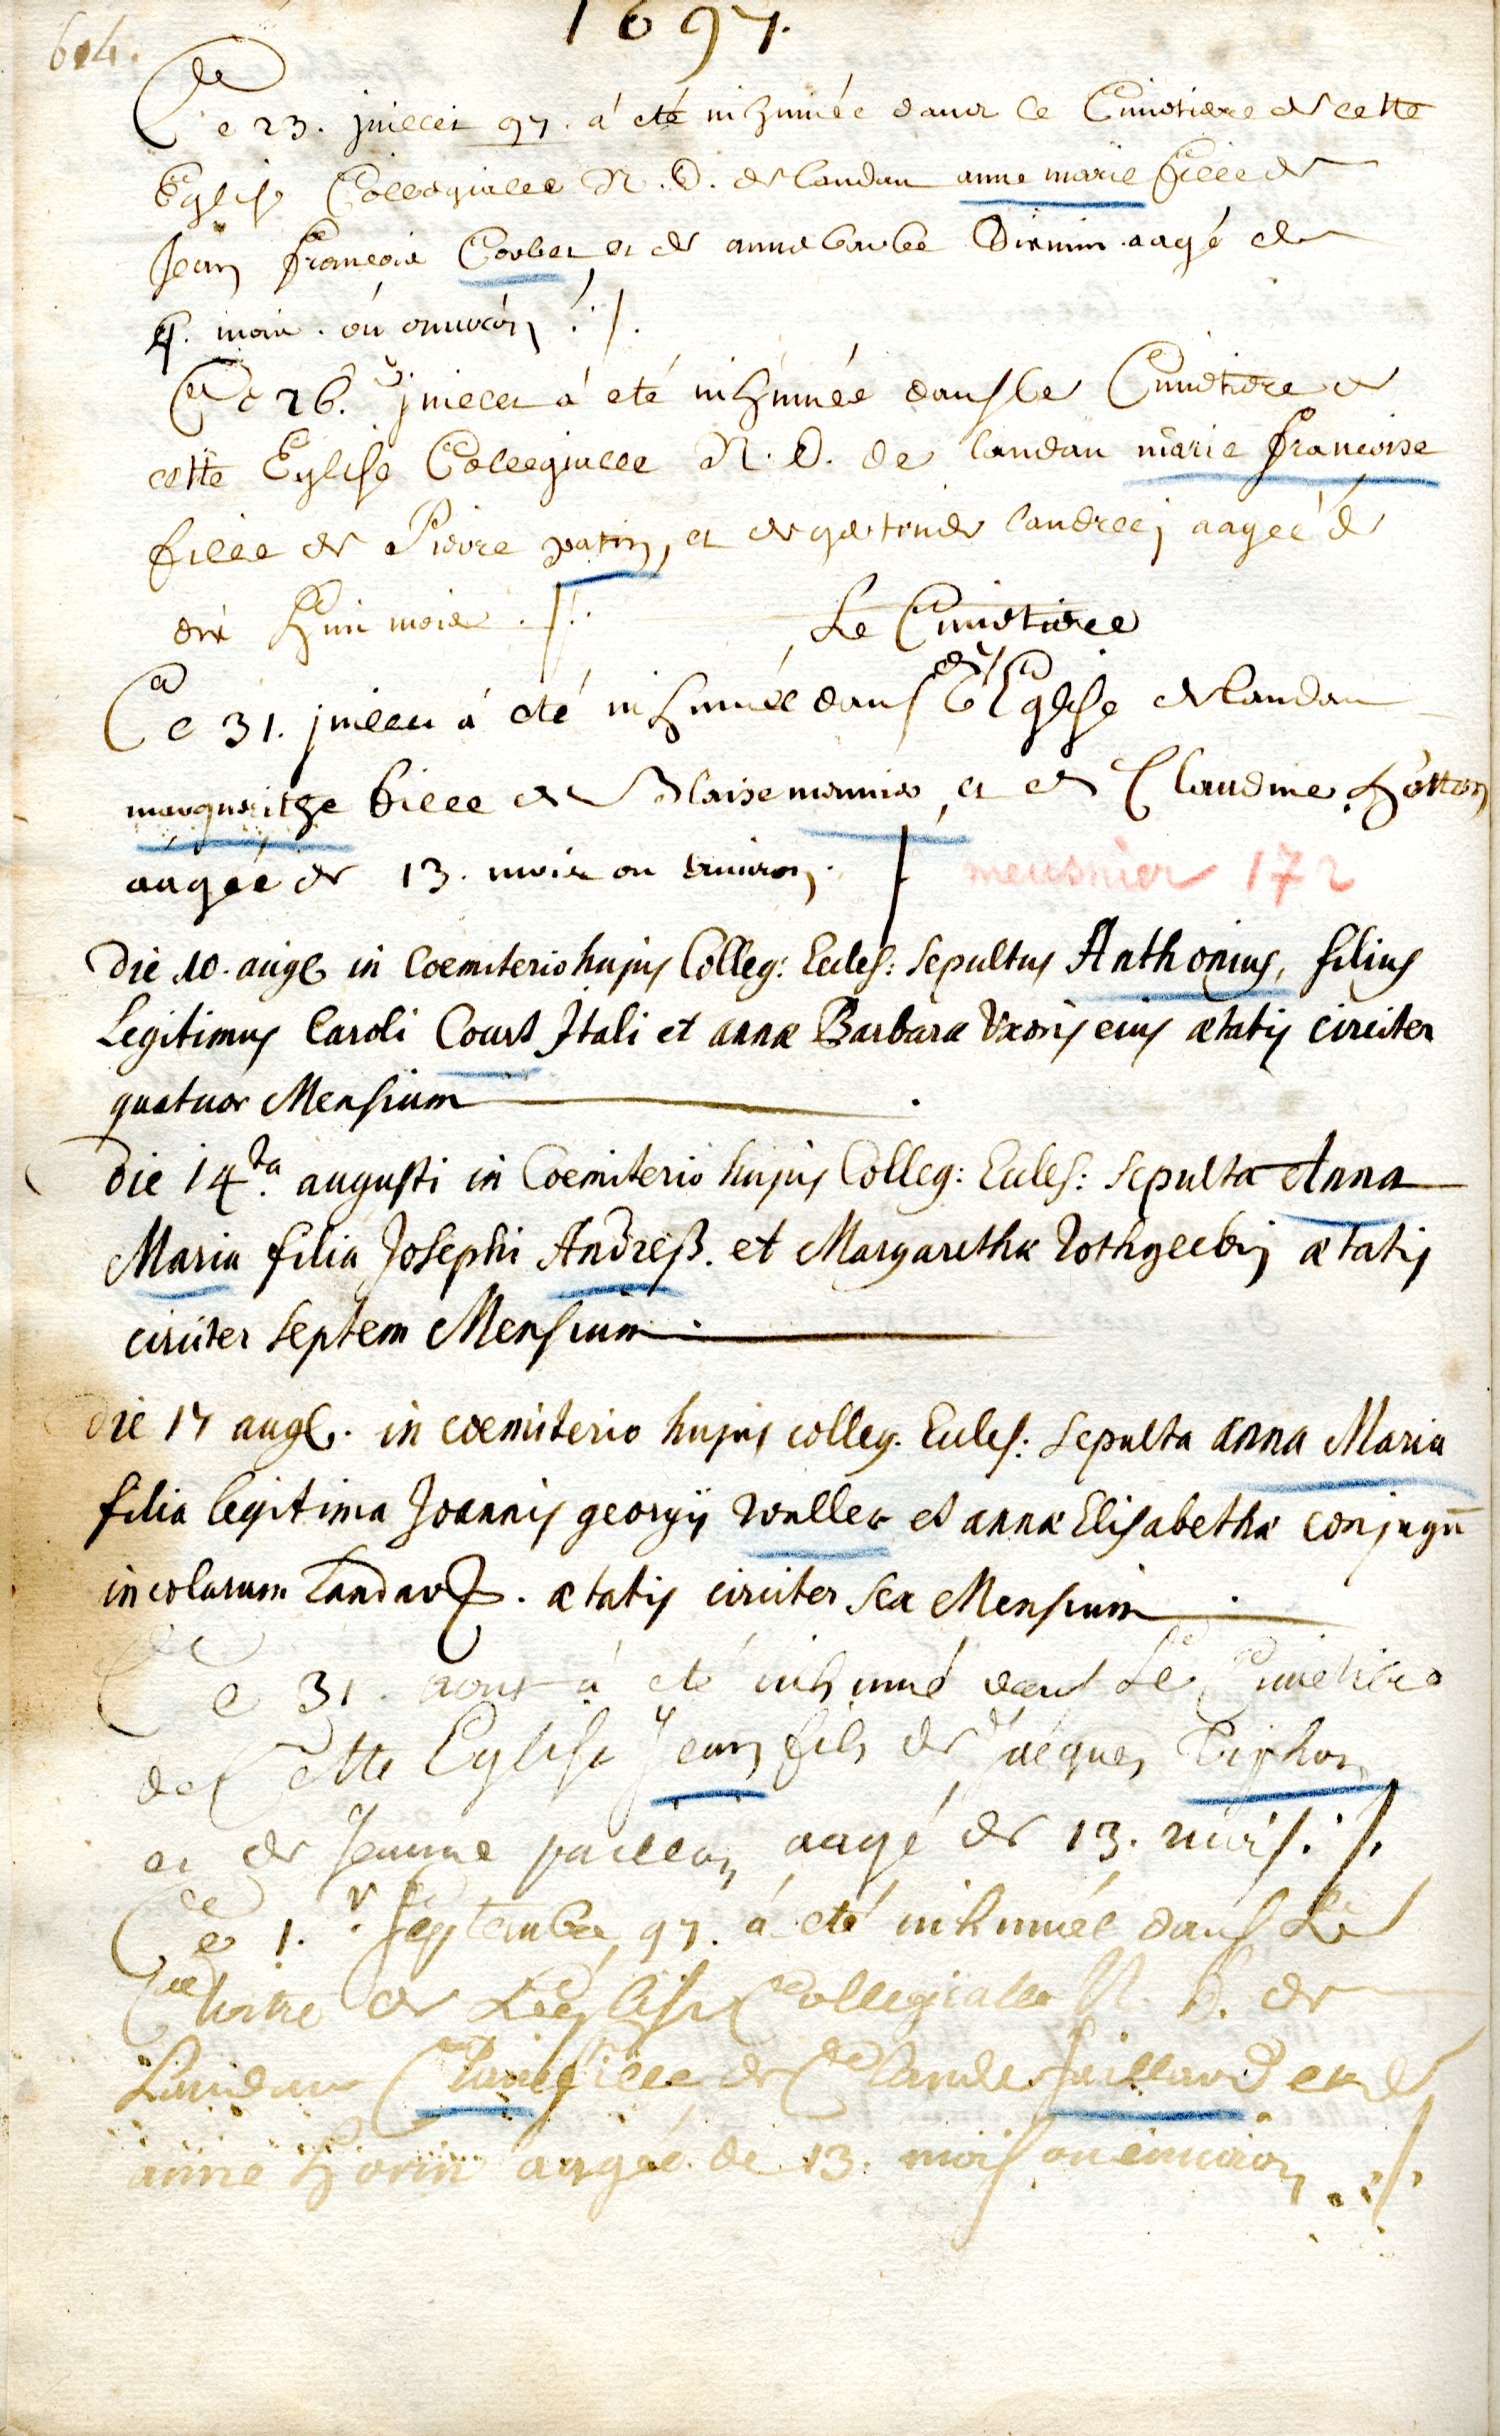 604.
1697.
Ce 23. juillet 97. á eté inhumée dans le Cimetiere de cette
Eglise Collegialle N. D. de landau anne marie fille de
Jean françois Corbet et de anne barbe Dirmin aagé de
4. mois. ou environ ./.
Ce 26. juillet á eté inhumée dans le Cimetiere de
cette Eglise Collegialle N. D. de landau marie françoise
fille de Pierre patin, et de gertrude landree, aageé de
dix huit mois ./.
Le Cimetiere
Ce 31. juillet á eté inhumée dans de l'Eglise de landau
marguerithe fille de Blaise munnier et de Claudine hotton
aageé de 13. mois ou environ.
meusnier 172
Die 10. aug. in Coemiterio hujus Colleg: Eccles: Sepultus Anthonius, filius
Legitimus Caroli Court Itali et annæ Barbaræ Uxoris eius ætatis circiter
quatuor Mensium
Die 14ta augusti in Coemiterio hujus Colleg: Eccles: sepulta Anna
Maria filia Josephi Andreß. et Margarethæ Rothgeebin ætatis
circiter Septem Mensium
Die 17 aug. in coemiterio hujus colleg. Eccles: Sepulta anna Maria
filia legitima Joannis georgÿ waller et annæ Elisabethæ conjugū
incolarum Landav. ætatis circiter sex Mensium
Ce 31. aout á eté inhumé dans le Cimetiere
de Cette Eglise Jean fils de Jacques Tiphon
et de Jeanne paillon aagé de 13. mois ./.
Ce 1.r Septembre 97. á eté inhumée dans Le
Cimetiere de L'église Collegialle N. D. de
Landau Claire fille de Claude Juillard et de
anne horin aageé de 13. mois ou environ ./.